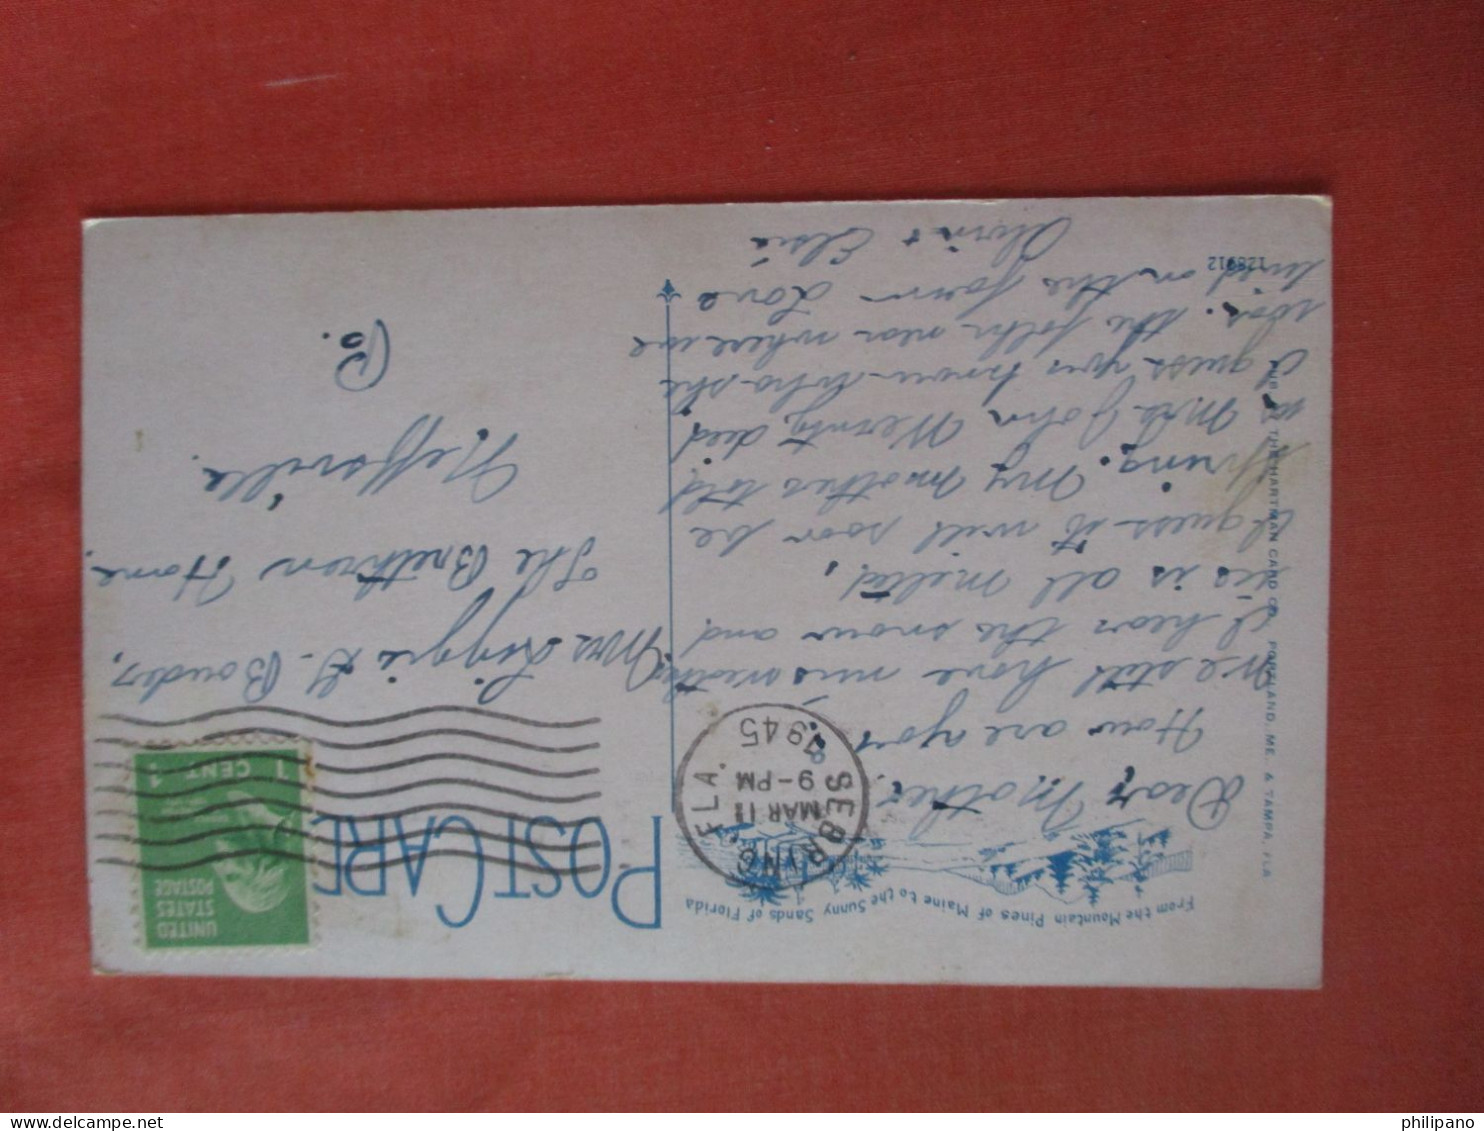 From the Mountain Pines of Maine to the Sunny Sands of Florida
POST CARD
UNITED
STATES
POSTAGE
1 CENT 1
SEBRING, FLA.
MAR 11
9-PM
1945
Dear Mother,
How are you?
We still have nice weather
I hear the snow and
ice is all melted.
I guess it will soon be
spring. My mother told
Mrs John died
I guess you know who she
was. the folks near where we
lived on the farm Love
Alvin + Elsie
Mrs Lizzie G. Bouder,
The Brethren Home
Neffsville
Pa.
PUB. BY THE HARTMAN CARD CO., PORTLAND, ME. & TAMPA, FLA.
128912
philipano